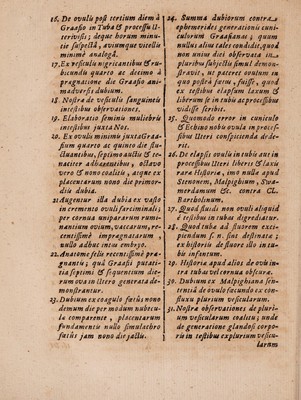 16. De ovulis post tertium diem à
Graafio in Tuba & processu U-
terivisis; deque horum minu-
tie suspectâ, aviumque vitelli
minimè analogâ.
17. Ex vesiculis nigricantibus & ru-
bicundis quarto ac decimo à
prægnatione die Graafio ani-
madversis dubium.
18. Nostræ de vesiculis sanguineis
ibidem observationes.
19. Elaboratio seminis muliebris
intestibus juxta Nos.
20. Ex ovulis minimo juxta Graa-
fium quarto ac quinto die flu-
ctuantibus, septimo autem & te-
naciter adhærentibus, octavo
vero & nono coalitis, atque ex
placentarum nono die primor-
diis dubia.
21. Augentur illa dubia ex vasto
in cremento ovuli farciminalis;
per cornua uniparorum rumi-
nantium ovium, vaccarum, re-
centissimè imprægnatarum,
nullo adhuc ineis embryo.
22. Anatome felis recentissimè præ-
gnantis; quâ Graafii putati-
tia septimi & sequentium die-
rum ova in Utero generata de-
monstrantur.
23. Dubium ex coagulo fœtûs nono
demum die per modum nubecu-
læ comparente, placentarum
fundamentis nullo simulachro
fœtûs jam nono die factis.
24. Summa dubiorum contra
ephemerides generationis cuni-
culorum Graafianas; quam
nullus alius talei conditis, quod
non unius diei observata in
pluribus subjectis simul demon-
stravit, ut pateret continuò in
quo postea fœtu, fuisse, quod
ex testibus elapsum laxum &
liberum se in tubis ac processibus
vidisse scribit.
25. Quomodo error in cuniculo
& Echino nobis ovula in proces-
sibus Uteri conspicienda dede-
rit.
26. De elapsis ovulis in tubis aut in
processibus Uteri liberis & laxis
raræ Historiæ, imo nulla apud
Stenonem, Malpighium, Swa-
merdamum &. contra CL
Bartholinum.
27. Quod fluidi non ovuli aliquid
è testibus in tubas degrediatur.
28. Quod tubæ ad fluorem exci-
piendum s. n. sint destinatæ;
ex historiis de fluore illo in tu-
bis infantum.
29. Historiæ apud alios de ovis in-
tra tubas vel cornua obscuræ.
30. Dubium ex Malpighiana sen-
tentiâ de ovulo fœcundo ex con-
fluxu plurium vesicularum.
31. Nostræ observationes de pluri-
um vesicularum coalitu; unde
de generatione glandosi corpo-
ris in testibus ex plurium vesicu-
larum